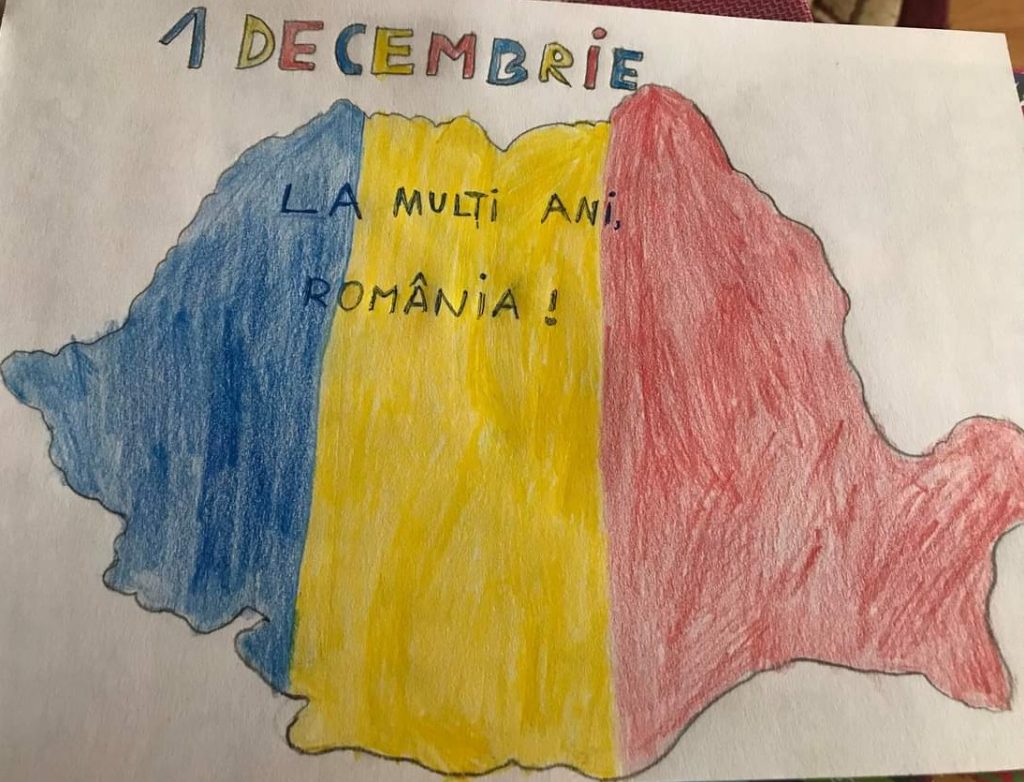 1 DECEMBRIE
LA MULȚI ANI,
ROMÂNIA !